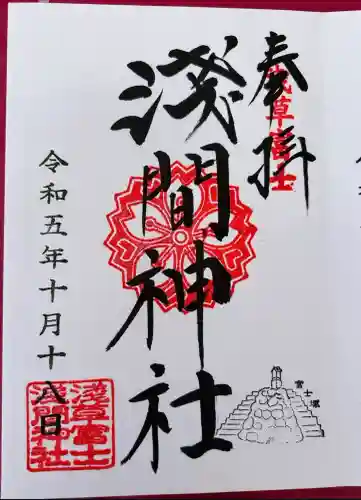 奉拝
浅草富士
淺間神社
令和五年十月十八日
浅草富士
浅間神社
富士塚